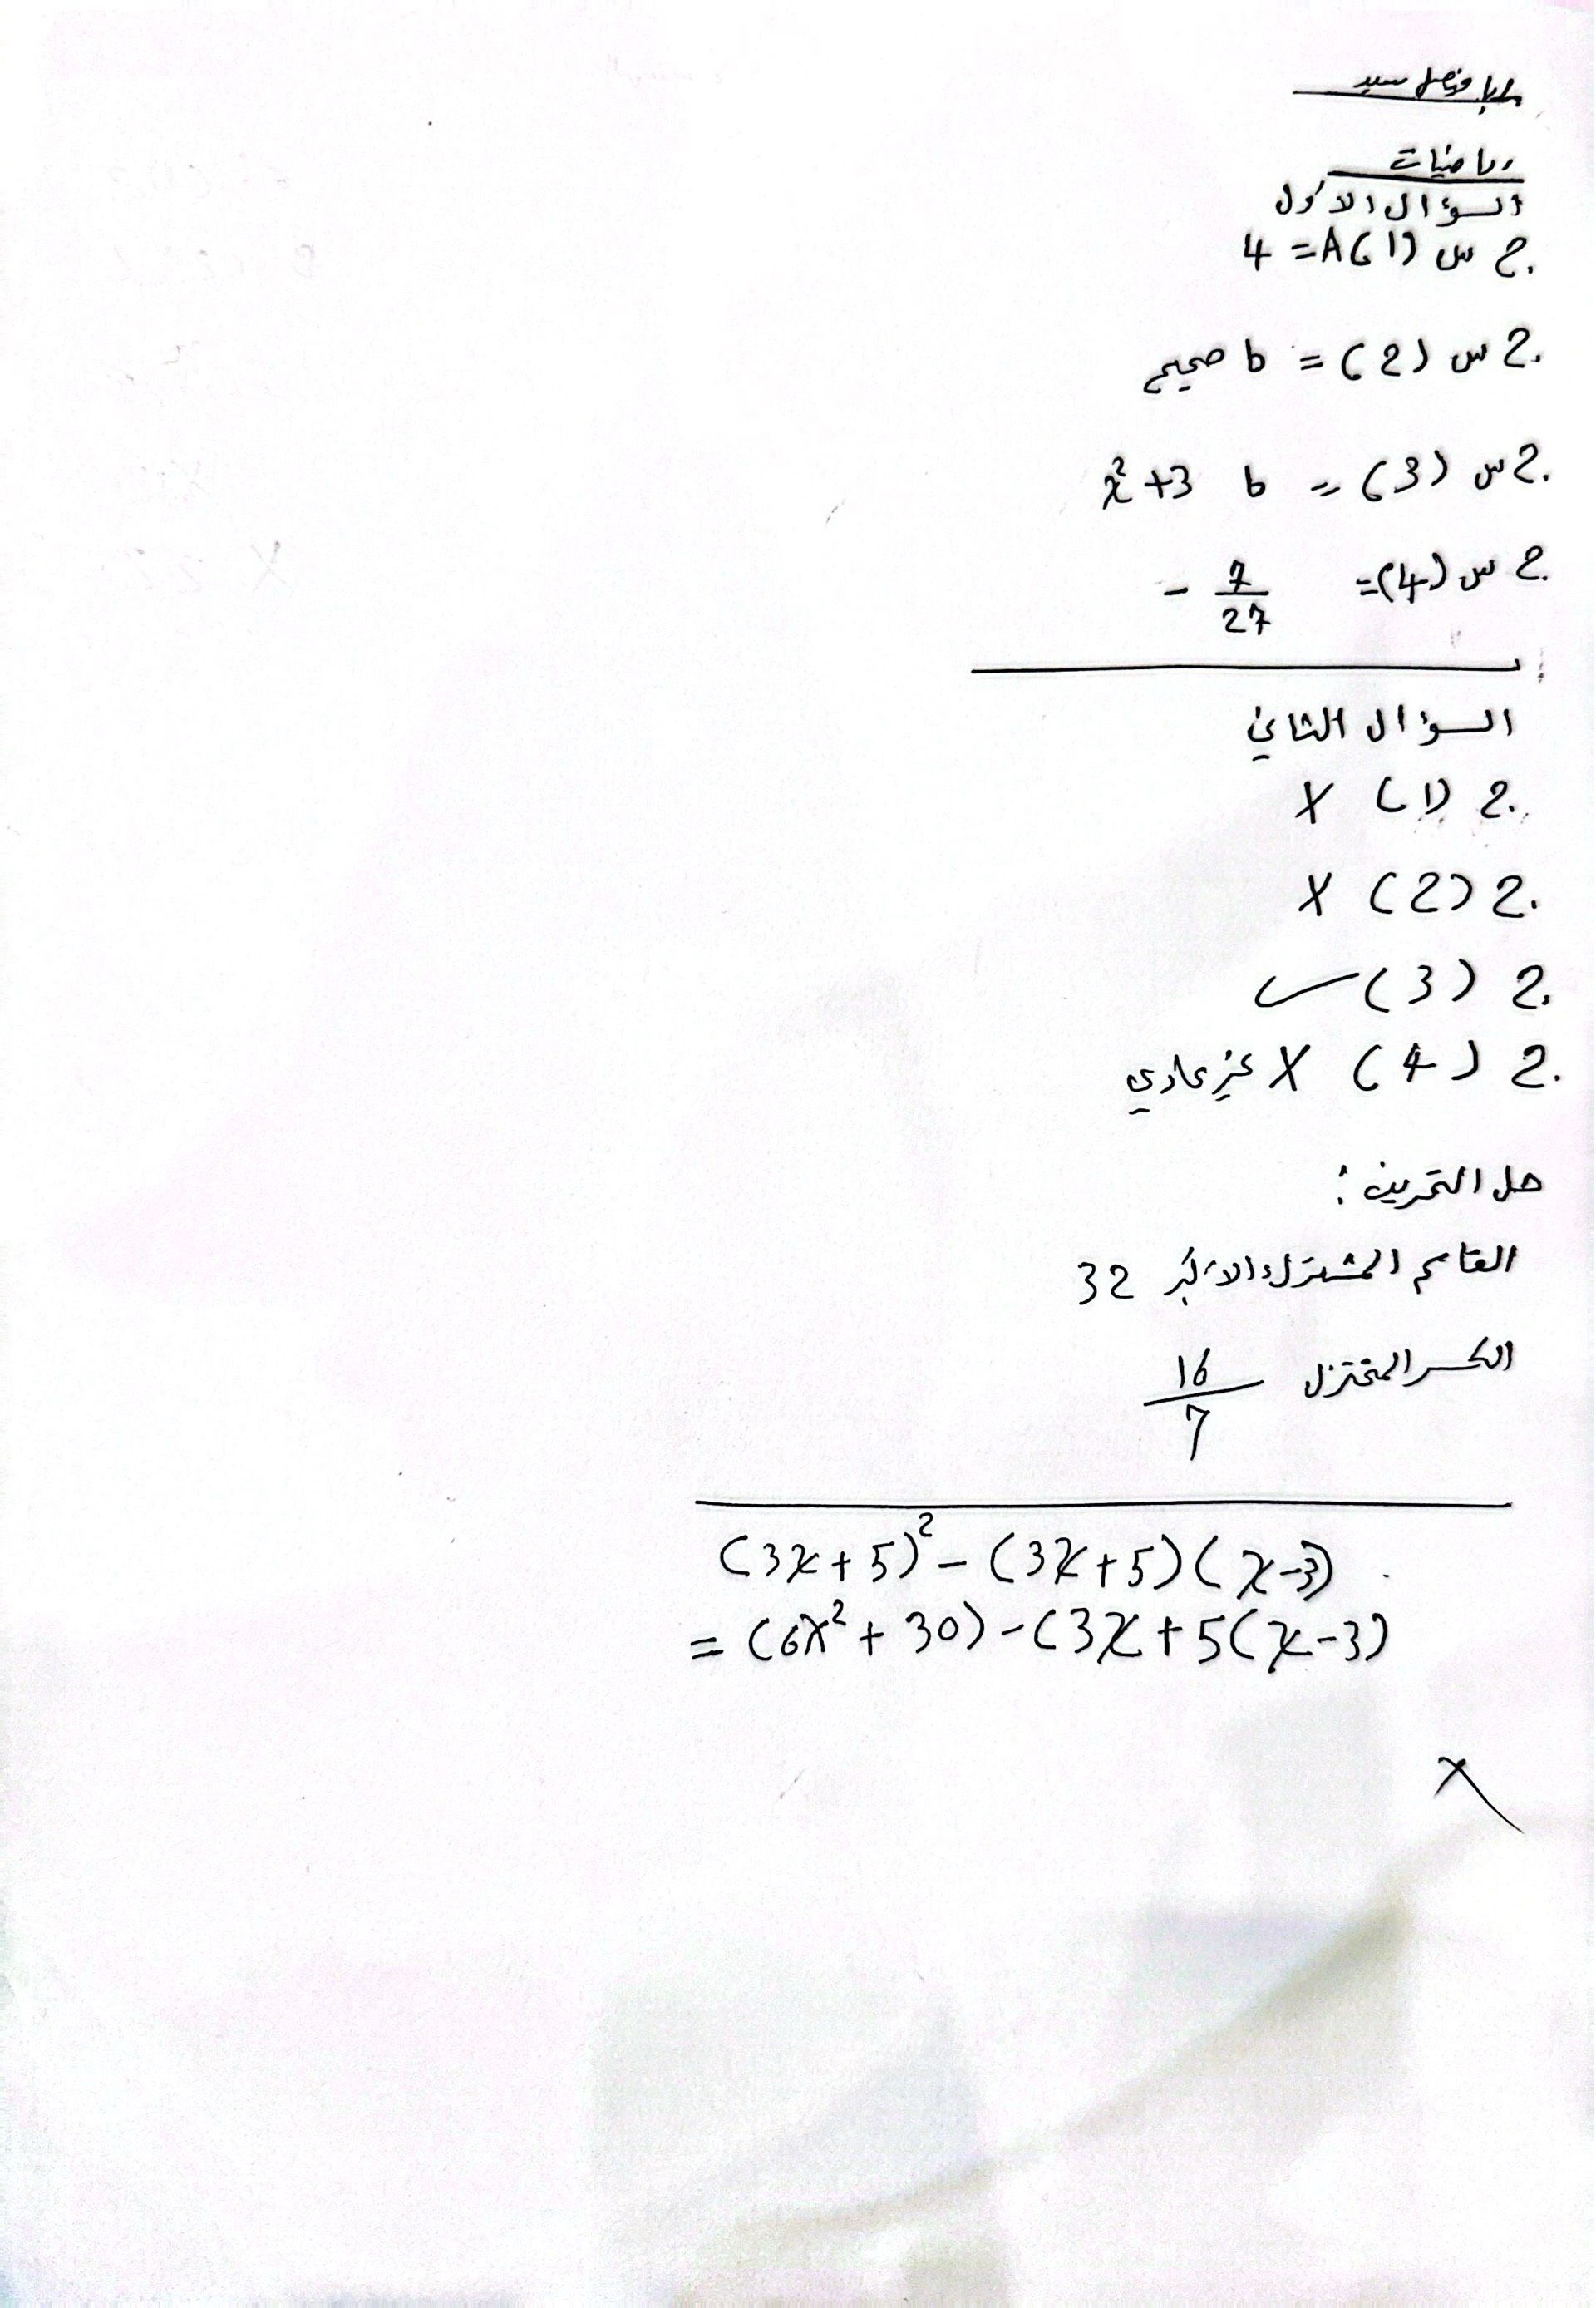 رياضيات
السؤال الأول
ج س (1) A = 4
ج س (2) = b صحيح
ج س (3) = b x²+3
ج س (4) = - 7/27
السؤال الثاني
ج (1) X
ج (2) X
ج (3) ✓
ج (4) X غير عادي
حل التمرين :
القاسم المشترك الأكبر 32
الكسر المختزل 16/7
(3x+5)² - (3x+5)(x-3)
= (6x² + 30) - (3x+5(x-3)
x